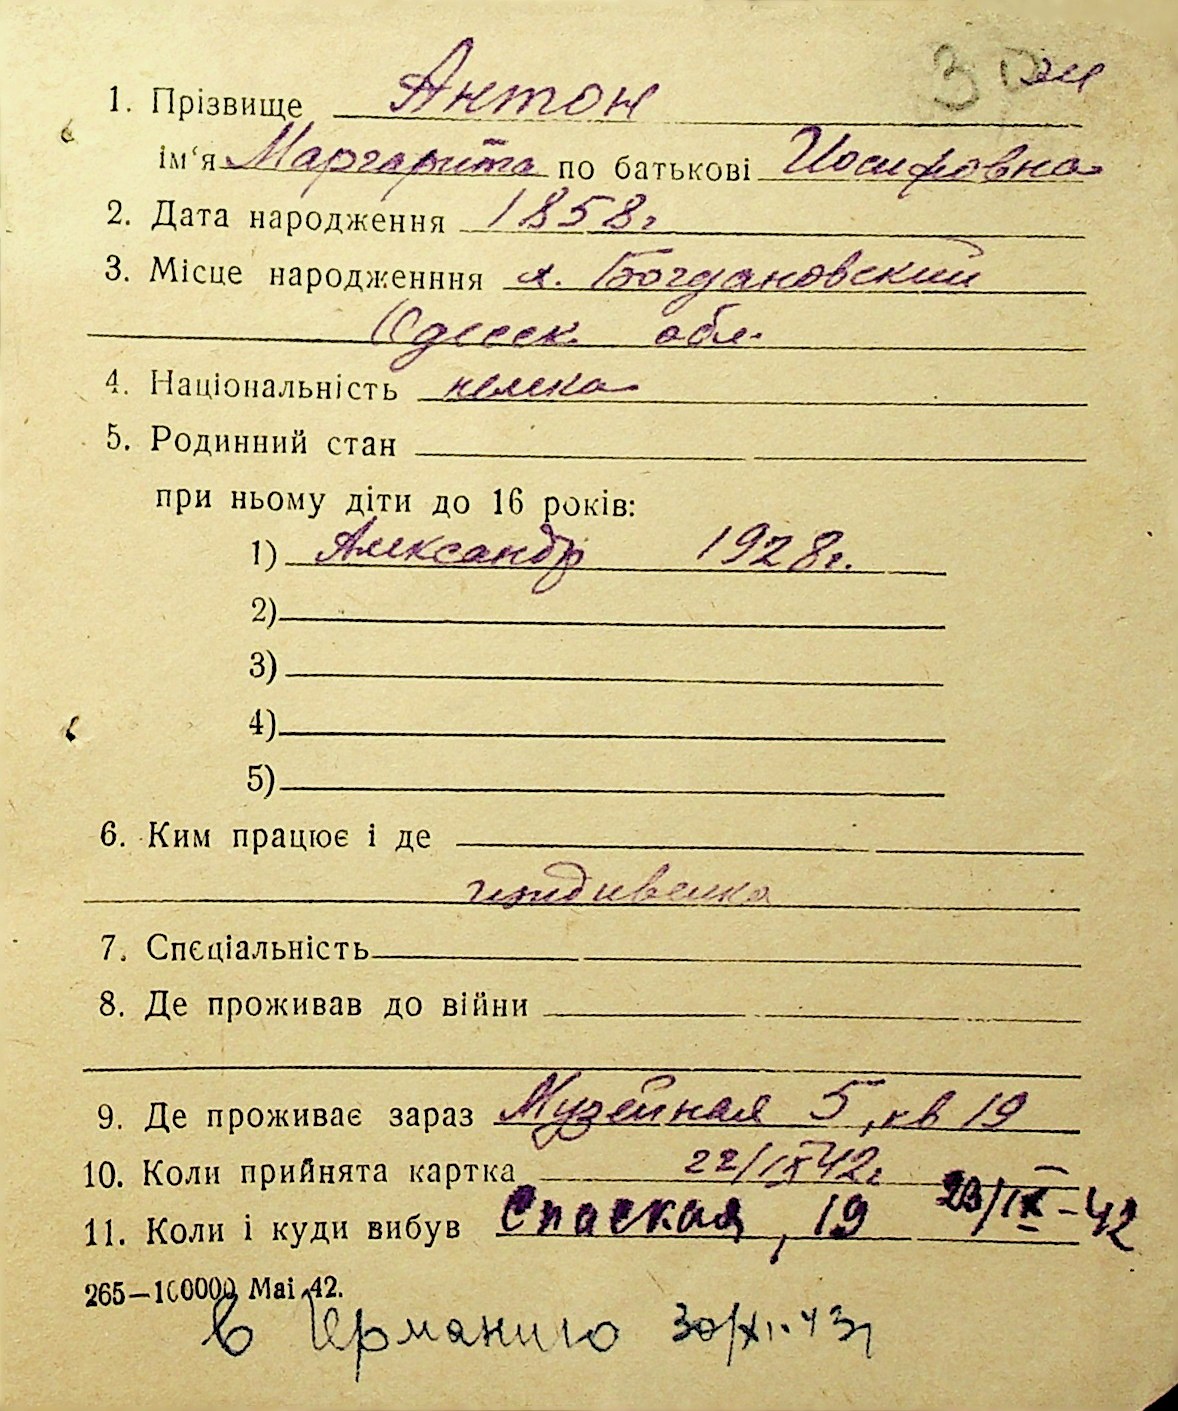 1. Прізвище Антон
ім'я Маргарита по батькові Иосифовна
2. Дата народження 1858г
3. Місце народженння х. Богдановский
Одесск. обл.
4. Національність немка
5. Родинний стан
при ньому діти до 16 років:
1) Александр 1928г.
2)
3)
4)
5)
6. Ким працює і де
иждивенка
7. Спеціальність
8. Де проживав до війни
9. Де проживає зараз Музейная 5, кв 19
10. Коли прийнята картка 22/IX 42г
11. Коли і куди вибув Спаская, 19 23/IX-42
265—100000 Mai 42.
в Германию 30/XI.43г